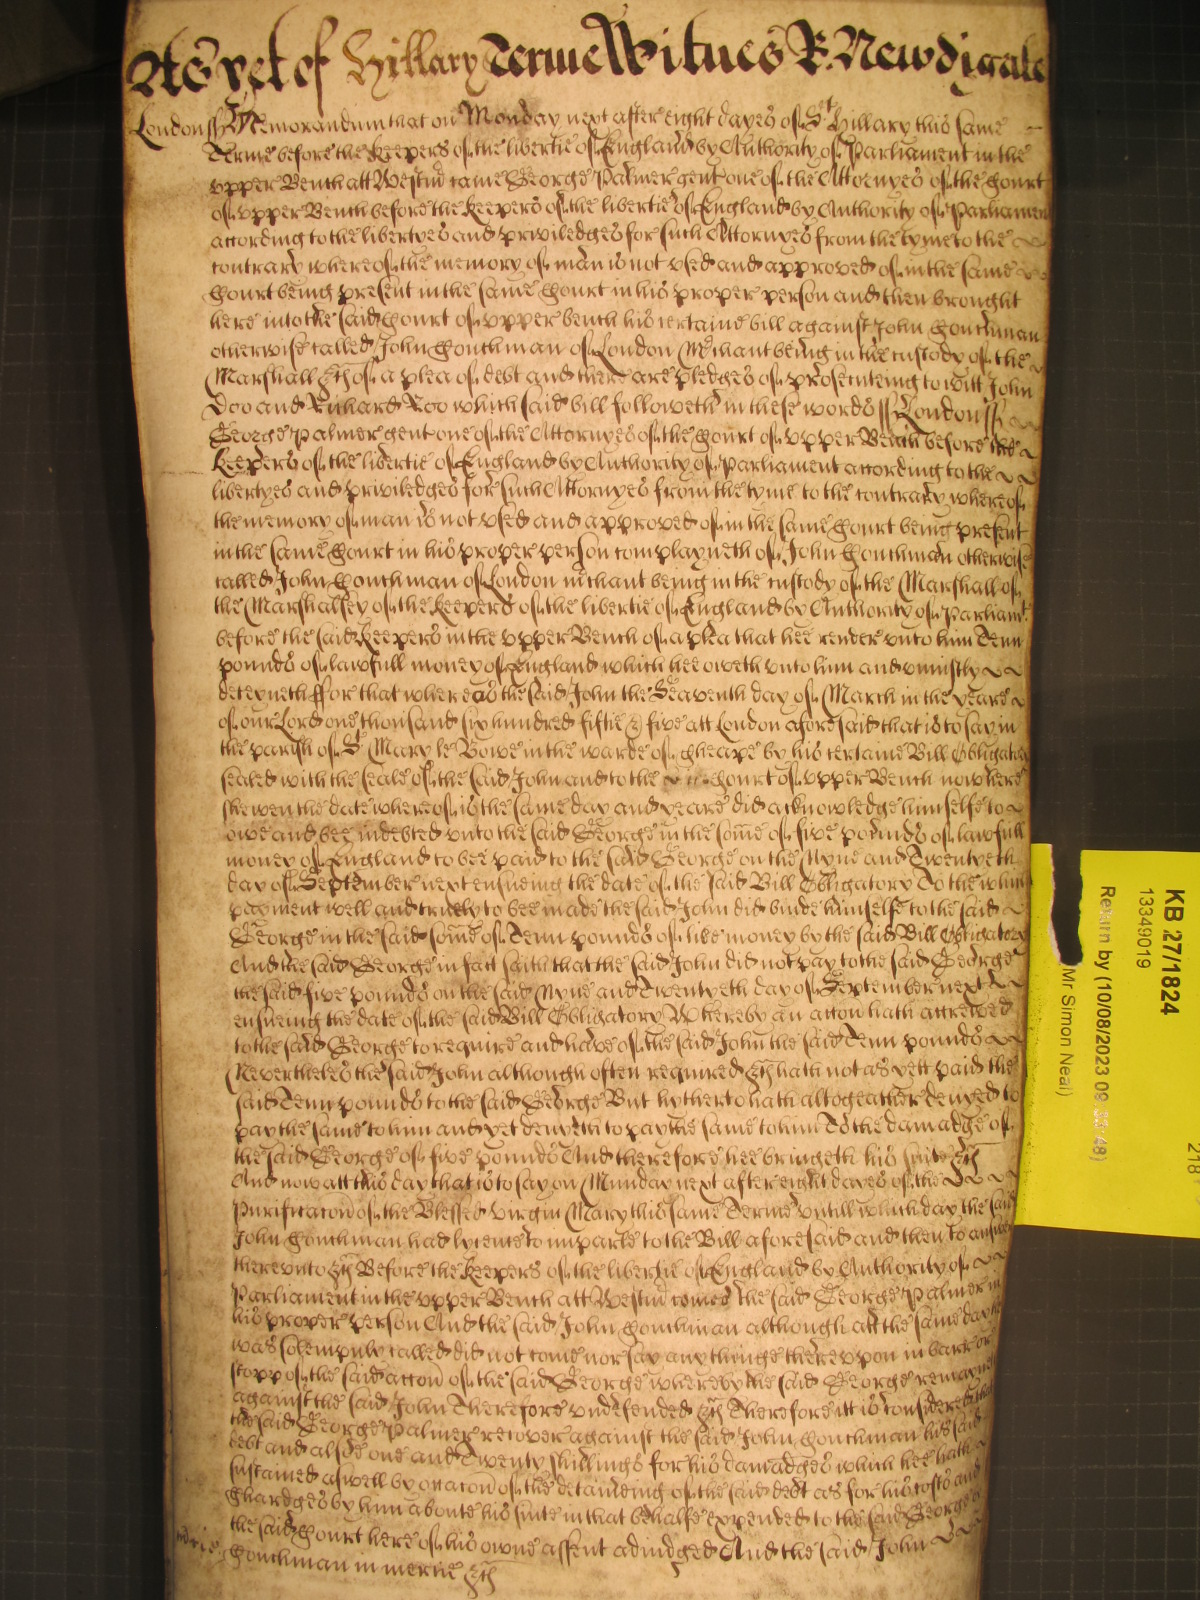 As yet of Hillary Terme Witnes R: Newdigate
London ss Memorandum that on Monday next after eight dayes of St Hillary this same
Terme before the Keepers of the libertie of England by Authority of Parliament in the
vpper Bench att Westm came George Palmer gent one of the Attornyes of the Court
of vpper Bench before the Keepers of the libertie of England by Authority of Parliament
according to the libertyes and priviledges for such Attornyes from the tyme to the
contrary whereof the memory of man is not vsed and approved of in the same
Court being present in the same Court in his proper person and then brought
here into the said Court of vpper bench his certaine bill against John Couchman
otherwise called John Couchman of London Mrchant being in the custody of the
Marshall &c of a plea of debt and there are pledges of prosecuteing to witt John
Doo and Richard Roo which said bill followeth in these words ss London ss
George Palmer gent one of the Attornyes of the Court of vpper Bench before the
Keepers of the libertie of England by Authority of Parliament according to the
libertyes and priviledges for such Attornyes from the tyme to the contrary whereof
the memory of man is not vsed and approved of in the same Court being present
in the same Court in his proper person complayneth of John Couchman otherwise
called John Couchman of London mchant being in the custody of the Marshall of
the Marshalsey of the Keepers of the libertie of England by Authority of Parliamt
before the said Keepers in the vpper Bench of a plea that hee render vnto him Tenn
pounds of lawfull money of England which hee oweth vnto him and vniustly
deteyneth ffor that whereas the said John the Seaventh day of March in the yeare
of our Lord one thousand six hundred fiftie & five att London aforesaid that is to say in
the parish of St Mary le Bowe in the warde of Cheape by his certaine Bill Obligatory
sealed with the seale of the said John and to the Court of vpper Bench now here
shewen the date whereof is the same day and yeare did acknowledge himselfe to
owe and bee indebted vnto the said George in the some of five pounds of lawfull
money of England to bee paid to the said George on the Nyne and Twentyeth
day of September next ensueing the date of the said Bill Obligatory To the which
payment well and truely to bee made the said John did binde himselfe to the said
George in the said some of Tenn pounds of like money by the said Bill Obligatory
And the said George in fact saith that the said John did not pay to the said George
the said five pounds on the said Nyne and Twentyeth day of September next
ensueing the date of the said Bill Obligatory Whereby an accon hath accrewed
to the said George to require and have of the said John the said Tenn pounds
Nevertheles the said John although often required &c hath not as yett paid the
said Tenn pounds to the said George But hytherto hath altogeather denyed to
pay the same to him and yet denyeth to pay the same to him To the damadge of
the said George of five pounds And therefore hee bringeth his suite &c
And now att this day that is to say on Munday next after eight dayes of the
Purificacon of the Blessed virgin Mary this same Terme vntill which day the said
John Couchman had lycence to imparle to the Bill aforesaid and then to answere
therevnto &c Before the Keepers of the libertie of England by Authority of
Parliament in the vpper Bench att Westm comes the said George Palmer in
his proper person And the said John Couchman although att the same day
was solempnly called did not come nor say any thinge therevpon in barr or
stopp of the said accon of the said George whereby the said George remaynes
against the said John Therefore vndefended &c Therefore itt is considered that
the said George Palmer recover against the said John Couchman his said
debt and alsoe one and Twenty shillings for his damadges which hee hath
sustained aswell by occacon of the detaineing of the said debt as for his costs and
Chardges by him aboute his suite in that behalfe expended to the said George
the said Court here of his owne assent adiudged And the said John
Couchman in mercie &c
KB 27/1824
13349019
Return by (10/08/2023 09:33:48)
Mr Simon Neal